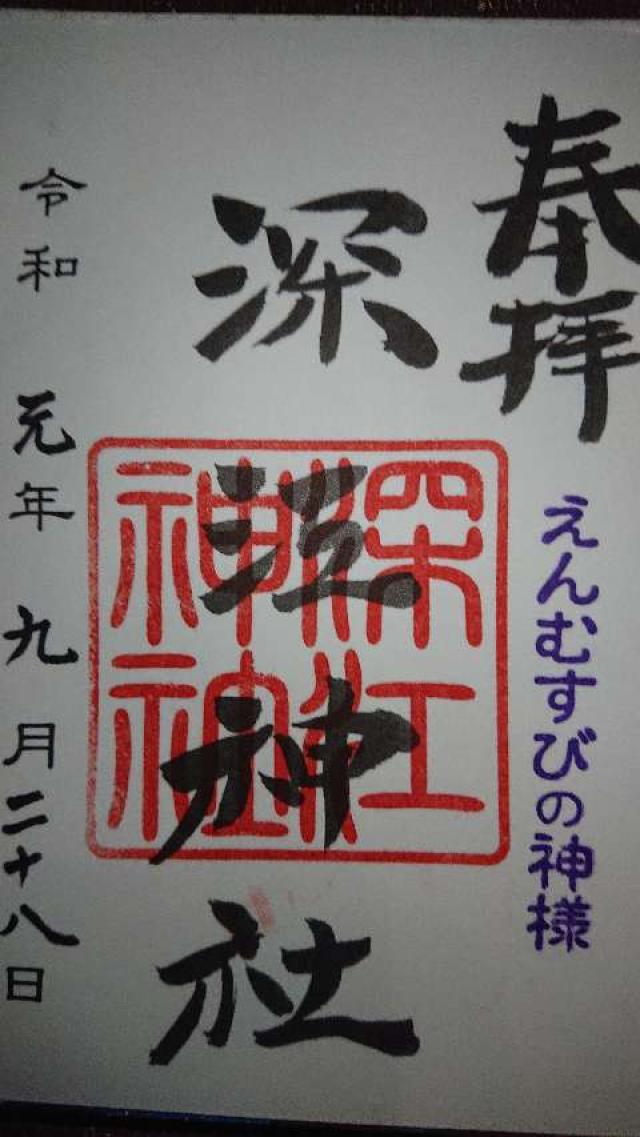 奉拝
えんむすびの神様
深江神社
深江
神社
令和元年九月二十八日